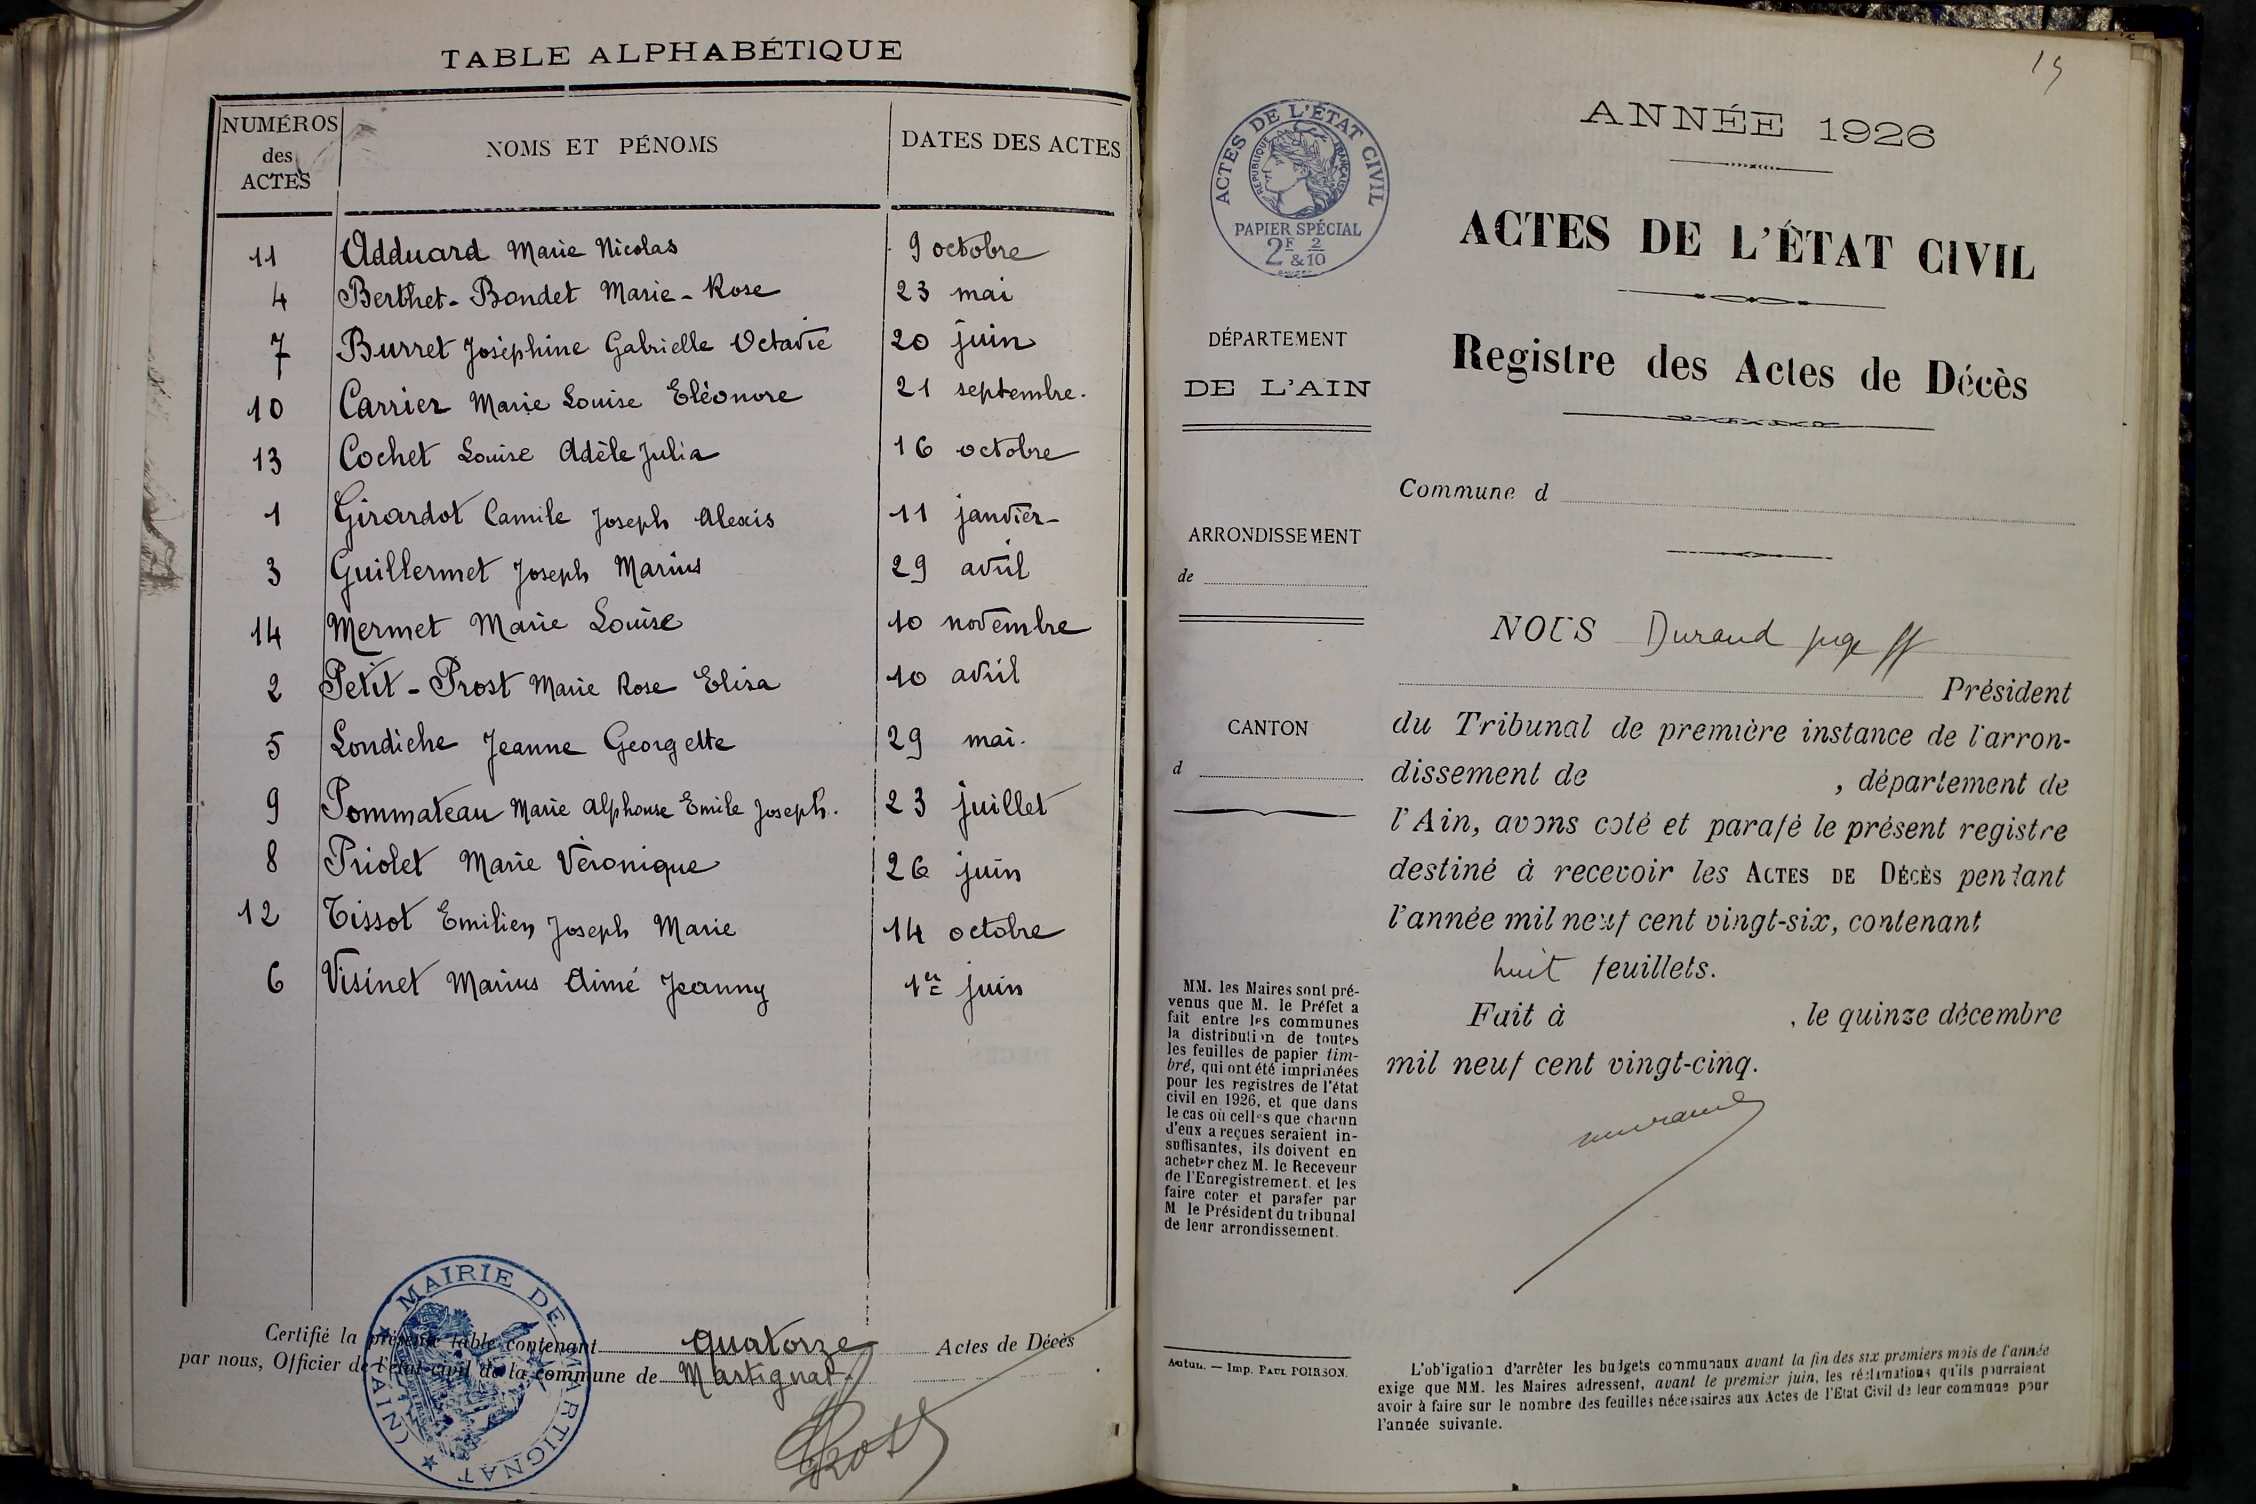 TABLE ALPHABÉTIQUE
NUMÉROS des ACTES NOMS ET PÉNOMS DATES DES ACTES
11 Adduard Marie Nicolas 9 octobre
4 Berthet-Bondet Marie-Rose 23 mai
7 Burret Joséphine Gabrielle Octavie 20 juin
10 Carrier Marie Louise Eléonore 21 septembre.
13 Cochet Louise Adèle Julia 16 octobre
1 Girardot Camile Joseph Alexis 11 janvier
3 Guillermet Joseph Marius 29 avril
14 Mermet Marie Louise 10 novembre
2 Petit-Prost Marie Rose Elisa 10 avril
5 Londiche Jeanne Georgette 29 mai.
9 Pommateau Marie Alphonse Emile Joseph. 23 juillet
8 Priolet Marie Véronique 26 juin
12 Tissot Emilien Joseph Marie 14 octobre
6 Visinet Marius Aimé Jeanny 1er juin
Certifié la présente table contenant quatorze Actes de Décès
par nous, Officier de l'état-civil de la commune de Martignat.
MAIRIE DE MARTIGNAT (AIN)
15
ACTES DE L'ÉTAT CIVIL
REPUBLIQUE FRANÇAISE
PAPIER SPÉCIAL
2F & 2/10
DÉPARTEMENT
DE L'AIN
ARRONDISSEMENT
de
CANTON
d
MM. les Maires sont pré-
venus que M. le Préfet a
fait entre les communes
la distribution de toutes
les feuilles de papier tim-
bré, qui ont été imprimées
pour les registres de l'état
civil en 1926, et que dans
le cas où celles que chacun
d'eux a reçues seraient in-
suffisantes, ils doivent en
acheter chez M. le Receveur
de l'Enregistrement. et les
faire coter et parafer par
M le Président du tribunal
de leur arrondissement.
Autun. — Imp. PAUL POIRSON.
ANNÉE 1926
ACTES DE L'ÉTAT CIVIL
Registre des Actes de Décès
Commune d
NOUS Durand juge ff
Président
du Tribunal de première instance de l'arron-
dissement de , département de
l'Ain, avons coté et parafé le présent registre
destiné à recevoir les ACTES DE DÉCÈS pendant
l'année mil neuf cent vingt-six, contenant
huit feuillets.
Fait à , le quinze décembre
mil neuf cent vingt-cinq.
L'obligation d'arrêter les budgets communaux avant la fin des six premiers mois de l'année
exige que MM. les Maires adressent, avant le premier juin, les réclamations qu'ils pourraient
avoir à faire sur le nombre des feuilles nécessaires aux Actes de l'Etat Civil de leur commune pour
l'année suivante.